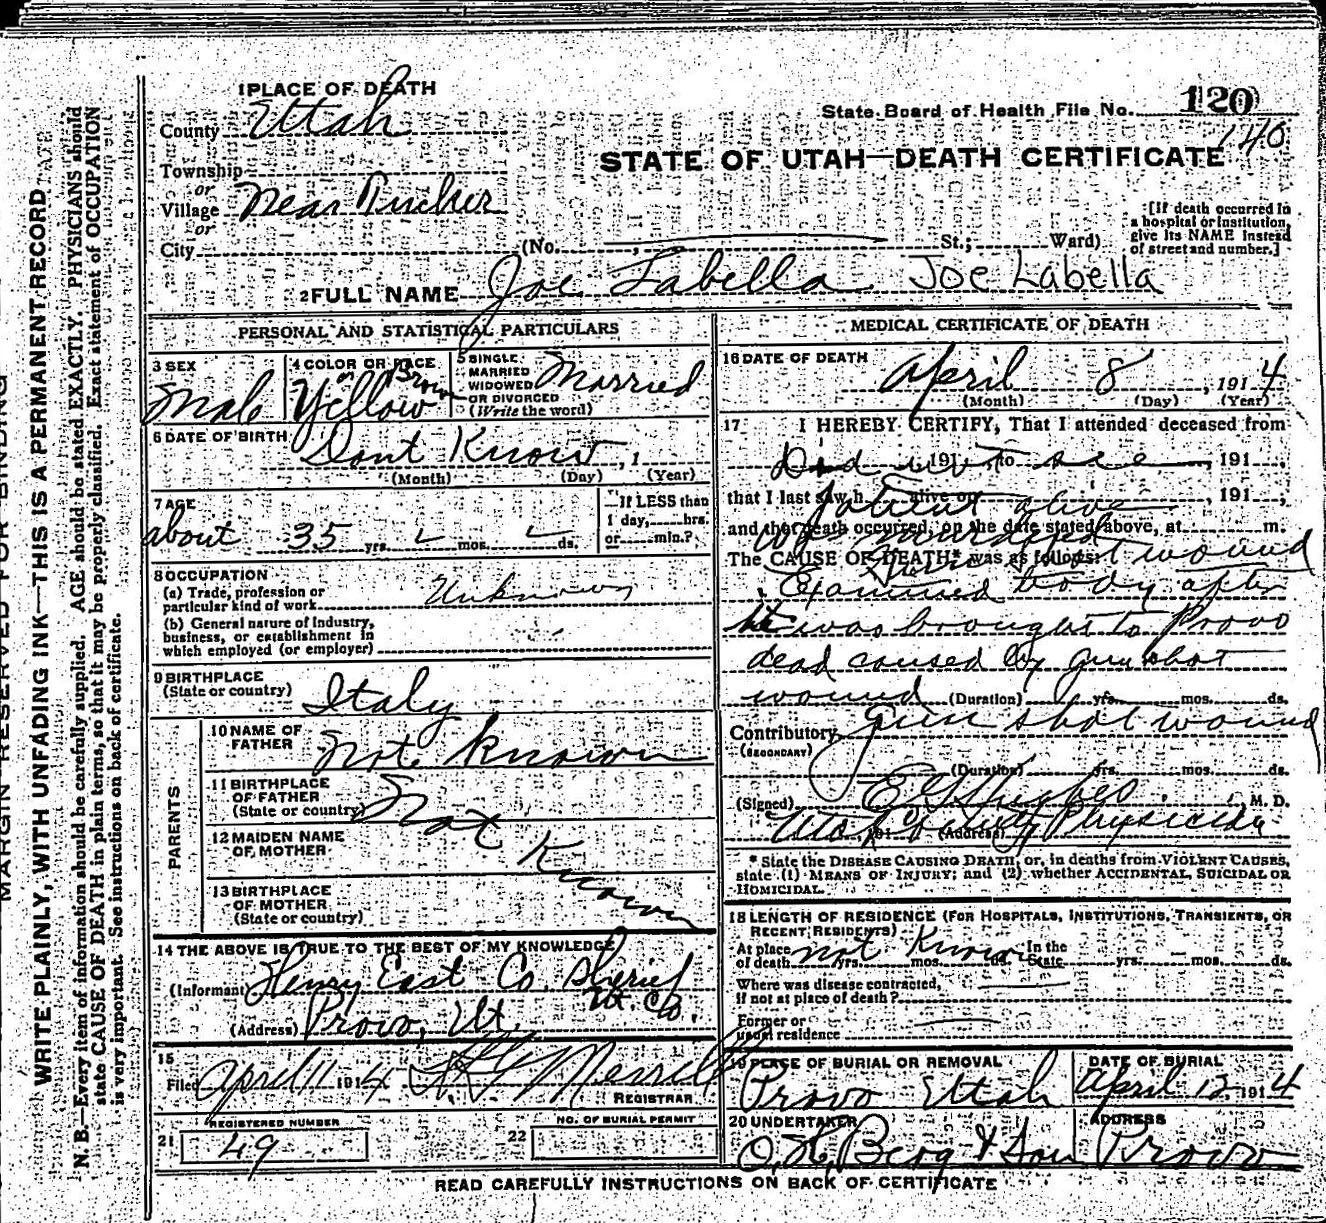 1 PLACE OF DEATH
County Utah
Township
or
Village Near Tucker
or
City (No. St.; Ward)
State Board of Health File No. 120
140
STATE OF UTAH—DEATH CERTIFICATE
[If death occurred in
a hospital or institution,
give its NAME instead
of street and number.]
2 FULL NAME Joe Labella Joe Labella
PERSONAL AND STATISTICAL PARTICULARS
3 SEX
Male
4 COLOR OR RACE
Yellow or Brown
5 SINGLE
MARRIED
WIDOWED
OR DIVORCED
(Write the word)
Married
6 DATE OF BIRTH
Dont Know , 1
(Month) (Day) (Year)
7 AGE
about 35 yrs. mos. ds.
If LESS than
1 day, hrs.
or min.?
8 OCCUPATION
(a) Trade, profession or
particular kind of work Unknown
(b) General nature of industry,
business, or establishment in
which employed (or employer)
9 BIRTHPLACE
(State or country) Italy
PARENTS
10 NAME OF
FATHER Not Known
11 BIRTHPLACE
OF FATHER
(State or country)
12 MAIDEN NAME
OF MOTHER
Not Known
13 BIRTHPLACE
OF MOTHER
(State or country)
14 THE ABOVE IS TRUE TO THE BEST OF MY KNOWLEDGE
(Informant) Henry East Co Sherief
Ut. Co.
(Address) Provo, Ut.
15
Filed April 11 1914 Merrill
REGISTRAR
REGISTERED NUMBER
21 49
NO. OF BURIAL PERMIT
22
MEDICAL CERTIFICATE OF DEATH
16 DATE OF DEATH
April 8 , 1914
(Month) (Day) (Year)
17 I HEREBY CERTIFY, That I attended deceased from
Did not see , 191 , to , 191 ,
that I last saw h alive on , 191 ,
patient alive
and that death occurred, on the date stated above, at m.
The CAUSE OF DEATH* was as follows:
wound
Examined body after
he was brought to Provo
dead caused by gun shot
wound (Duration) yrs. mos. ds.
Contributory gun shot wound
(SECONDARY)
(Duration) yrs. mos. ds.
(Signed) E G Hughes , M. D.
Utah County Physician
191 (Address)
* State the DISEASE CAUSING DEATH, or, in deaths from VIOLENT CAUSES,
state (1) MEANS OF INJURY; and (2) whether ACCIDENTAL, SUICIDAL OR
HOMICIDAL.
18 LENGTH OF RESIDENCE (FOR HOSPITALS, INSTITUTIONS, TRANSIENTS, OR
RECENT RESIDENTS)
At place
of death not Known yrs. mos. ds. In the
State yrs. mos. ds.
Where was disease contracted,
if not at place of death?
Former or
usual residence
19 PLACE OF BURIAL OR REMOVAL
Provo Utah
DATE OF BURIAL
April 12, 1914
20 UNDERTAKER
O. H. Berg & Son
ADDRESS
Provo
READ CAREFULLY INSTRUCTIONS ON BACK OF CERTIFICATE
MARGIN RESERVED FOR BINDING
WRITE PLAINLY, WITH UNFADING INK—THIS IS A PERMANENT RECORD
N. B.—Every item of information should be carefully supplied. AGE should be stated EXACTLY. PHYSICIANS should
state CAUSE OF DEATH in plain terms, so that it may be properly classified. Exact statement of OCCUPATION
is very important. See instructions on back of certificate.